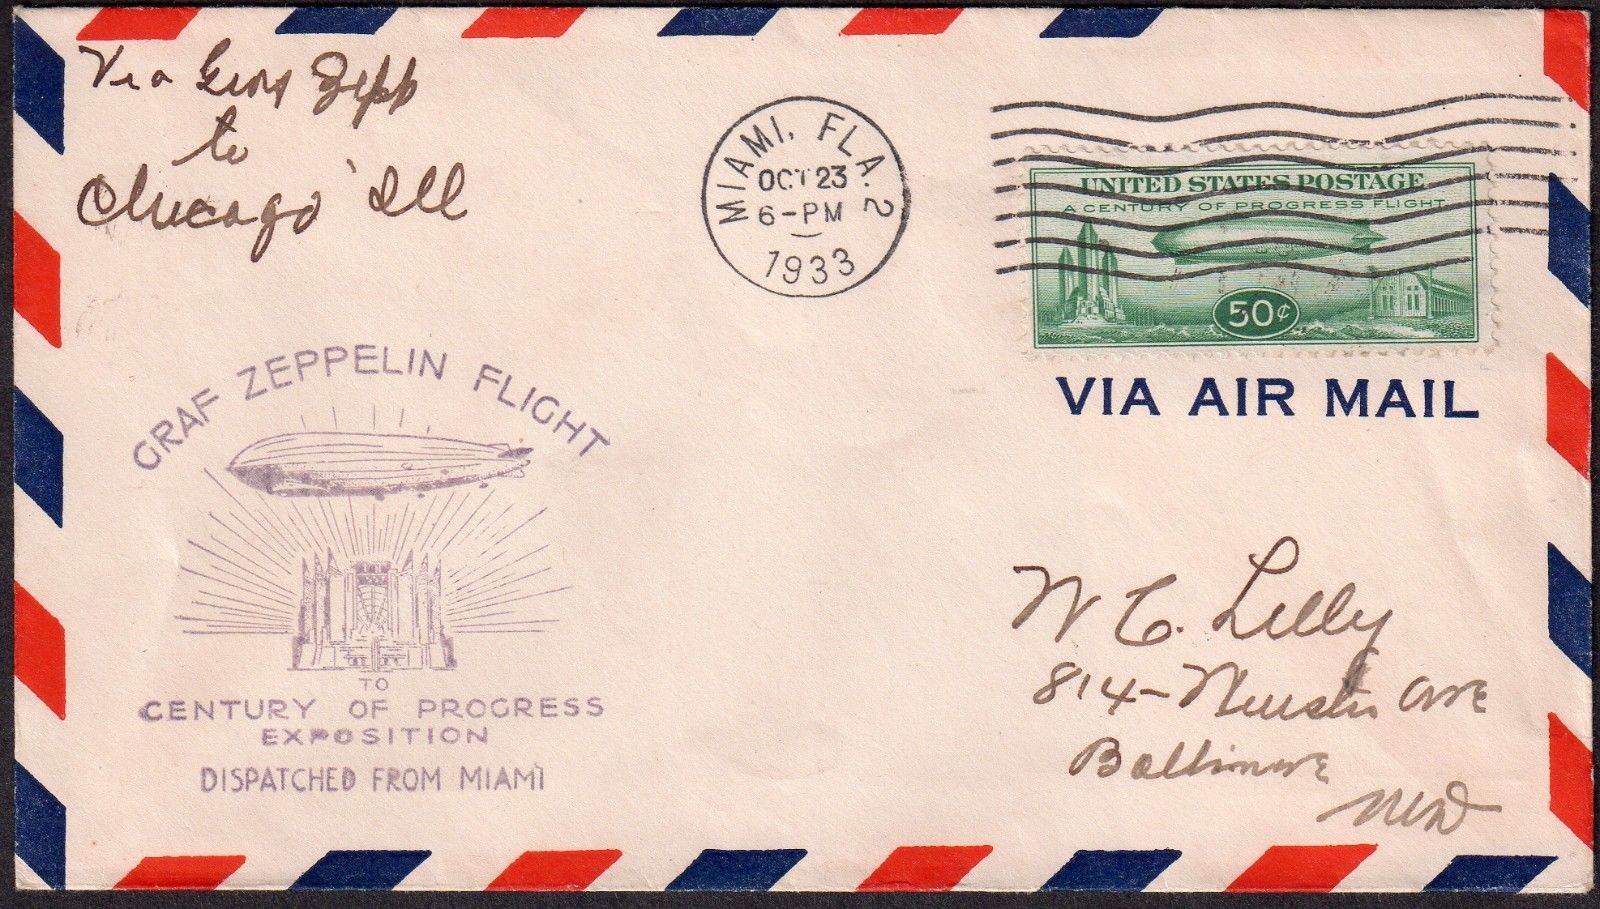 Via Graf Zepp
to
Chicago Ill
MIAMI, FLA. 2
OCT 23
6-PM
1933
UNITED STATES POSTAGE
A CENTURY OF PROGRESS FLIGHT
50¢
VIA AIR MAIL
GRAF ZEPPELIN FLIGHT
TO
CENTURY OF PROGRESS
EXPOSITION
DISPATCHED FROM MIAMI
W C. Lilly
814- Ave
Baltimore
Md